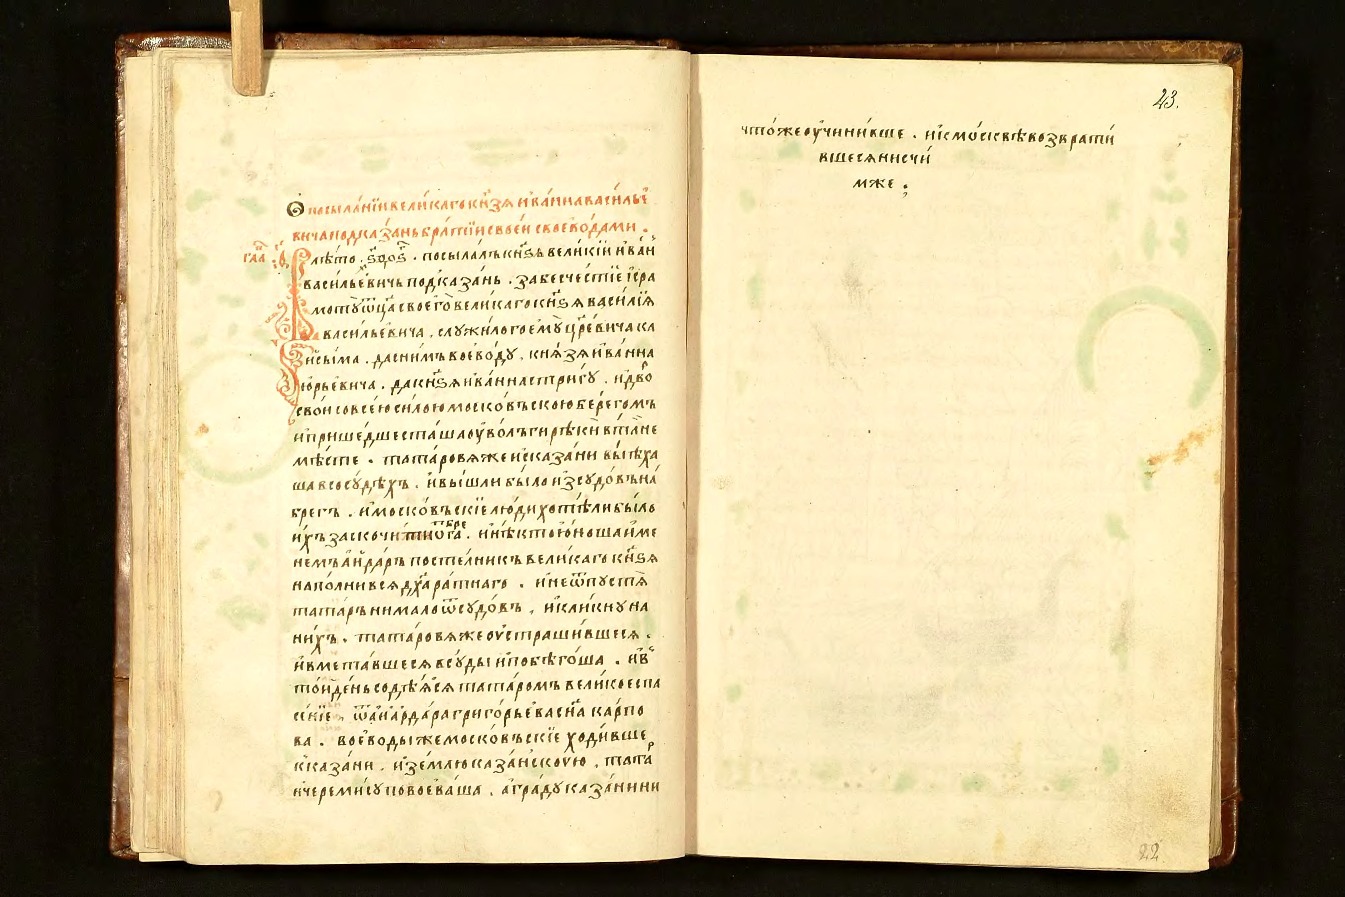 Ѻ посыла́нїи вели́каго кн҃зя и҆ва́нна васи́лье
вича подъ каза́нь бра́тїи своеи́ с воево́дами .
гла҃ в҃
В лѣ́то . ҂ѕ҃цо҃ѕ . посыла́лъ кн҃зь вели́кїи и҆ва́нъ
васи́льевичь под каза́нь . за бесче́стїе и҆ сра
моту̀ ѿца̀ своего̀ вели́каго кн҃зя васи́лїя
васи́льевича . служи́лого ему̀ цр҃е́вича ка
и́сыма . да с ни́мъ воево́ду . кня́зя и҆ва́нна
ю́рьевича . да кн҃зя и҆ва́нна стри́гу . и҆ дво́
свои́ со все́ю си́лою моско́въскою бе́регомъ
и҆ прише́дше ста́ша оу҆ во́лъги рѣки̂ в та́ине
мѣ́сте . тата́ровя же ис каза́ни вы́ѣха
ша в сосу́дѣхъ . и҆ вы́шли бы́ло из судо́въ на́
брегъ . и҆ моско́въскїе лю́ди хотѣ́ли бы́ло
и҆́хъ заскочи́ти ѿ бре́га . и҆ нѣ́кто ю́ноша и҆́ме
немъ а҆йда́ръ посте́лникъ вели́каго кн҃зя
напо́лнився дх҃а ра́тнаго . и҆ не ѿпустя̀
тата́ръ ни мало ѿ судо́въ , и҆ кли́кну на
ни́хъ . тата́ровя же оу҆страши́вшеся .
и҆ вмета́вшеся в су́ды и҆ побѣго́ша . и҆ в
то́й де́нь содѣ́яся тата́ромъ вели́кое спа
се́нїе . ѿ а҆йда́ра григо́рьева сн҃а ка́рпо
ва . воево́ды же моско́въскїе ходи́вше
к каза́ни . и҆ зе́млю каза́нскою , тата́р
и черeми́су повоева́ша . а҆ гра́ду каза́ни ни
23.
что́же оу҆чини́вше . и҆ к мо́сквѣ возврати́
вшеся ни с чи́
мже .
22